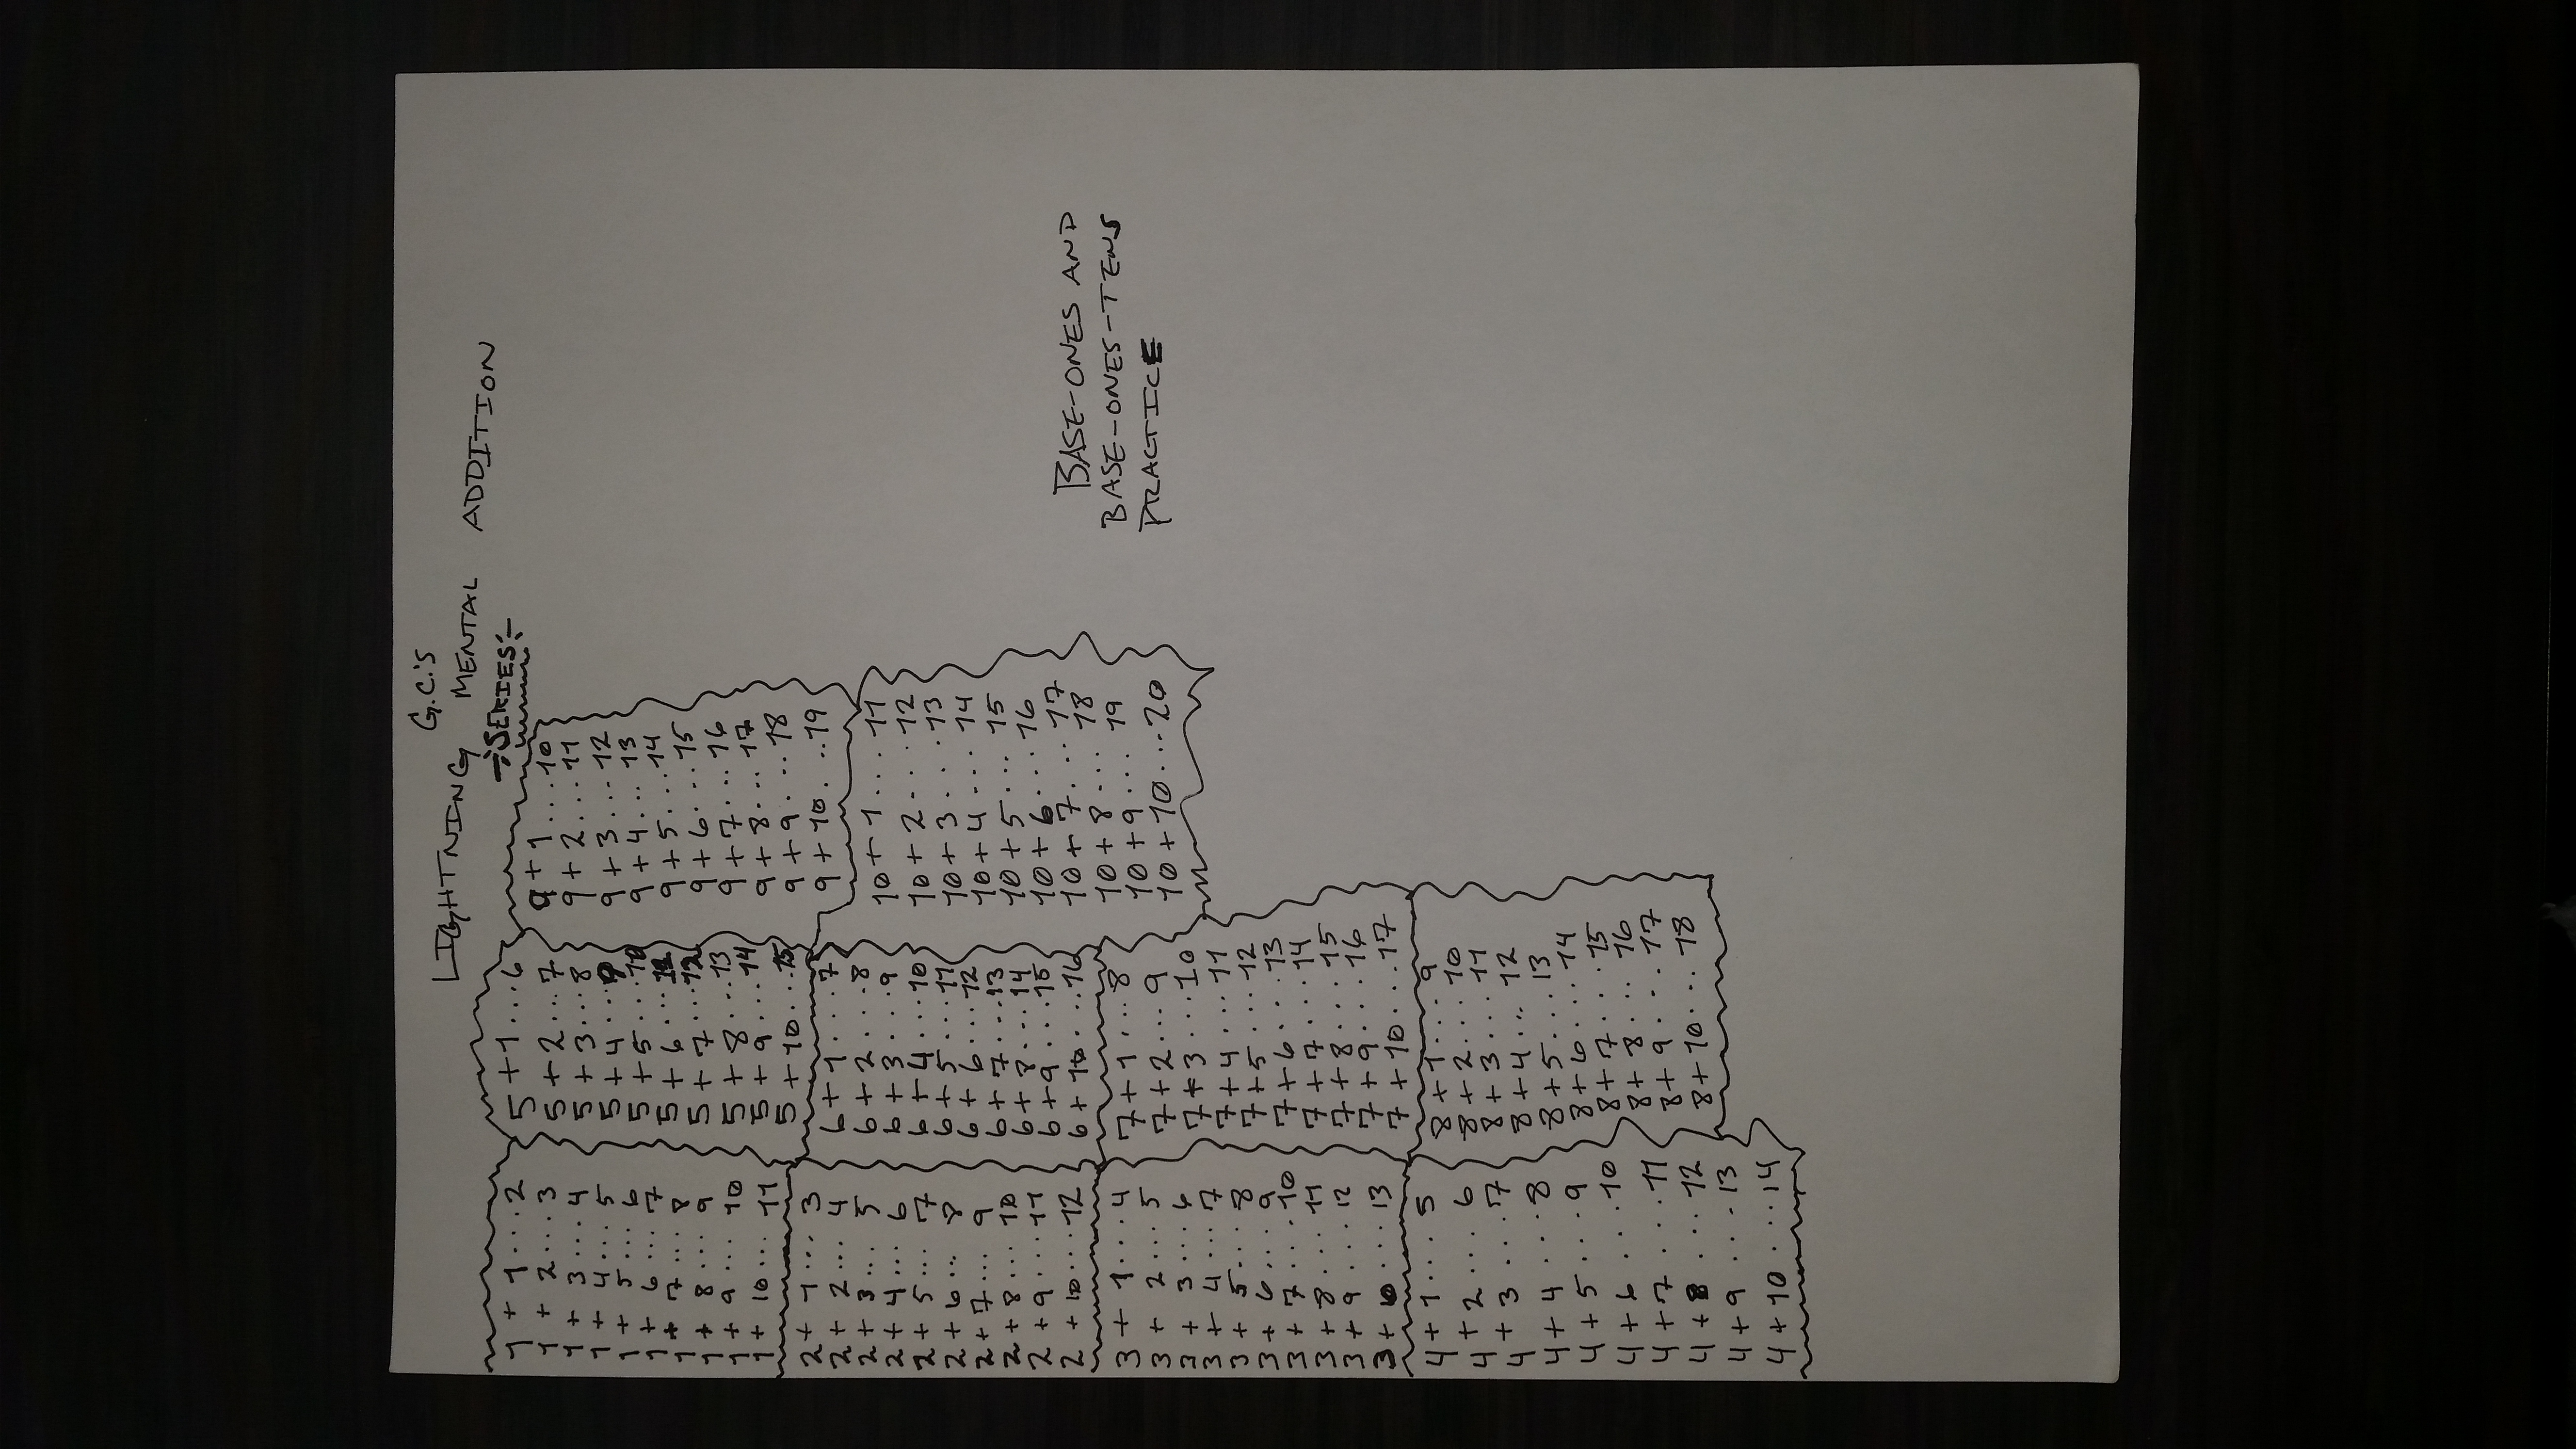 G.C.'s
LIGHTNING MENTAL ADDITION
SERIES
1 + 1...2
1 + 2...3
1 + 3...4
1 + 4...5
1 + 5...6
1 + 6...7
1 + 7...8
1 + 8...9
1 + 9...10
1 + 10...11
2 + 1...3
2 + 2...4
2 + 3...5
2 + 4...6
2 + 5...7
2 + 6...8
2 + 7...9
2 + 8...10
2 + 9...11
2 + 10...12
3 + 1...4
3 + 2...5
3 + 3...6
3 + 4...7
3 + 5...8
3 + 6...9
3 + 7...10
3 + 8...11
3 + 9...12
3 + 10...13
4 + 1...5
4 + 2...6
4 + 3...7
4 + 4...8
4 + 5...9
4 + 6...10
4 + 7...11
4 + 8...12
4 + 9...13
4 + 10...14
5 + 1...6
5 + 2...7
5 + 3...8
5 + 4...9
5 + 5...10
5 + 6...11
5 + 7...12
5 + 8...13
5 + 9...14
5 + 10...15
6 + 1...7
6 + 2...8
6 + 3...9
6 + 4...10
6 + 5...11
6 + 6...12
6 + 7...13
6 + 8...14
6 + 9...15
6 + 10...16
7 + 1...8
7 + 2...9
7 + 3...10
7 + 4...11
7 + 5...12
7 + 6...13
7 + 7...14
7 + 8...15
7 + 9...16
7 + 10...17
8 + 1...9
8 + 2...10
8 + 3...11
8 + 4...12
8 + 5...13
8 + 6...14
8 + 7...15
8 + 8...16
8 + 9...17
8 + 10...18
9 + 1...10
9 + 2...11
9 + 3...12
9 + 4...13
9 + 5...14
9 + 6...15
9 + 7...16
9 + 8...17
9 + 9...18
9 + 10...19
10 + 1...11
10 + 2...12
10 + 3...13
10 + 4...14
10 + 5...15
10 + 6...16
10 + 7...17
10 + 8...18
10 + 9...19
10 + 10...20
BASE-ONES AND
BASE-ONES-TENS
PRACTICE